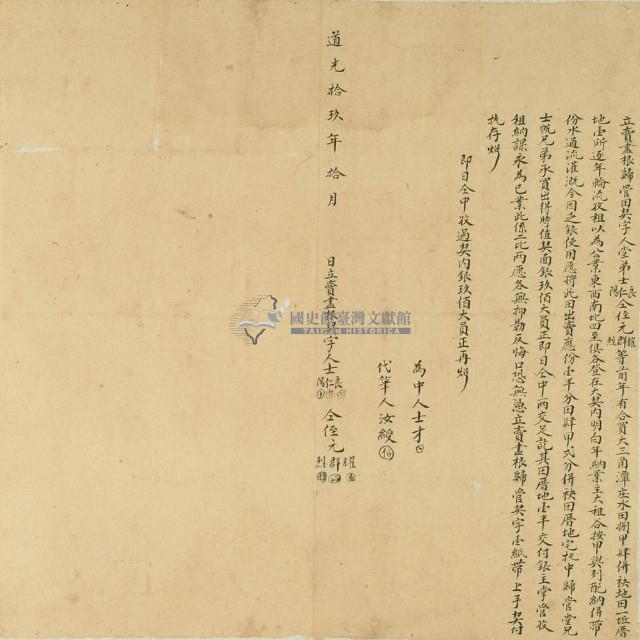 立賣盡根歸管田契字人堂弟士長仁陽仝侄元耀群烈等前年有合買大三角潭庄水田捌甲肆併秧地田一坵厝
地壹所逐年輪流收租以為公業東西南北四至俱各登在大契內明白年納業主大租谷按甲與列配納併帶
份水通流灌溉今因乏銀使用應將此田出賣應份壹半分田肆甲弍分併秧田厝地完托中歸管堂兄
士帆兄弟承買出得時值契面銀玖佰大員正即日仝中兩交足訖其田厝地壹半交付銀主掌管收
租納課永為己業此係二比兩應各無抑勒反悔口恐無憑立賣盡根歸管契字壹紙帶上手契付
执存炤
即日仝中收過契內銀玖佰大員正再炤
為中人士才
代筆人汝綬
道光拾玖年拾月
日立賣盡根 字人士長仁陽 仝侄元耀群烈
國史館臺灣文獻館
TAIWAN HISTORICA